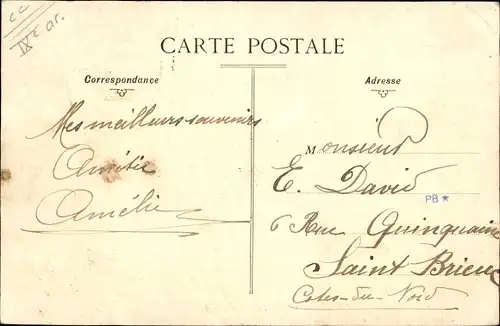 CC
IXe ar.
CARTE POSTALE
Correspondance
Adresse
Mes meilleurs souvenirs
Amitié
Amélie
Monsieur
E. David
PB*
6 Rue Quinquaine
Saint Brieuc
Côtes-du-Nord